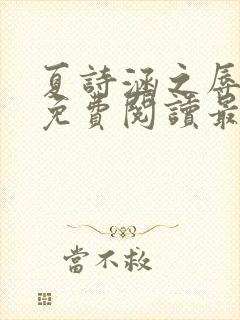 夏詩涵之辱
免費閱讀最
當不救